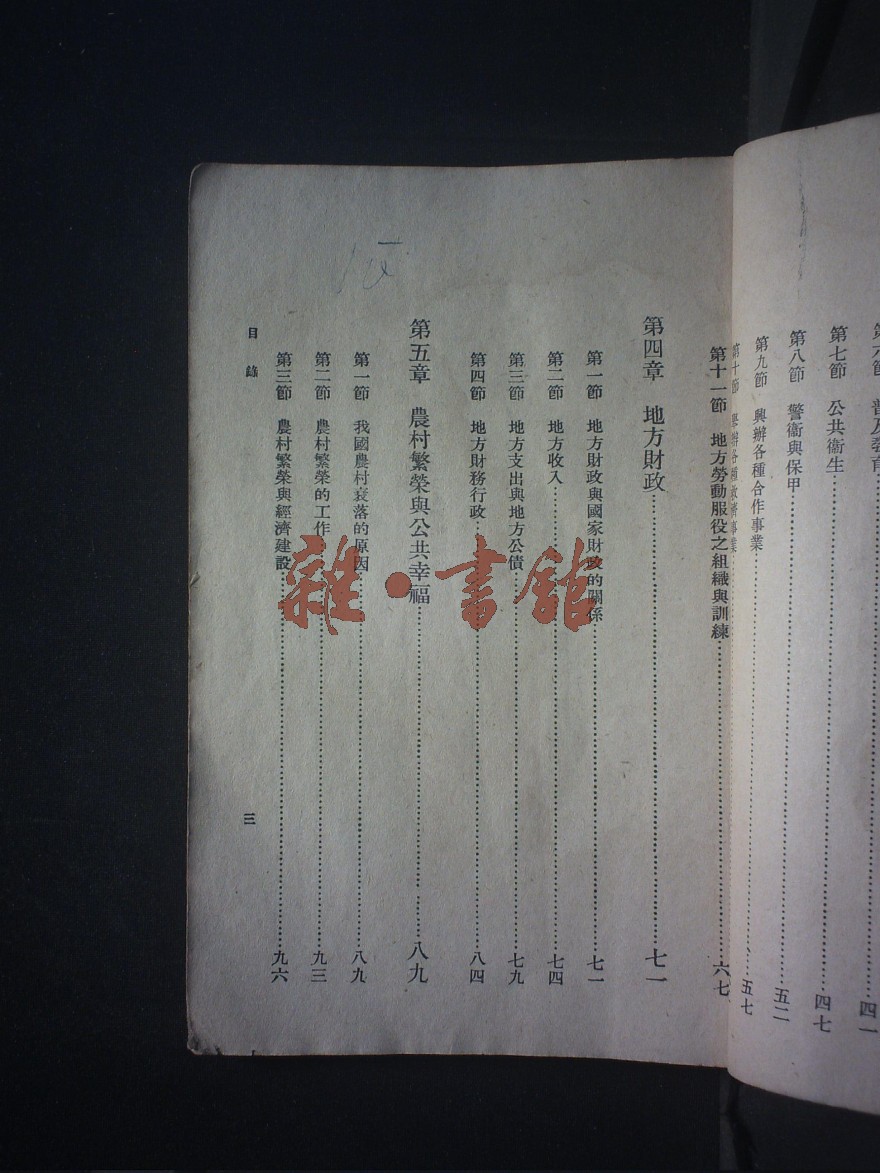 第七節　公共衞生……四七
第八節　警衞與保甲……五二
第九節　興辦各種合作事業……五七
第十節　舉辦各種救濟事業……
第十一節　地方勞動服役之組織與訓練……六七
第四章　地方財政……七一
第一節　地方財政與國家財政的關係……七一
第二節　地方收入……七四
第三節　地方支出與地方公債……七九
第四節　地方財務行政……八四
第五章　農村繁榮與公共幸福……八九
第一節　我國農村衰落的原因……八九
第二節　農村繁榮的工作……九三
第三節　農村繁榮與經濟建設……九六
目錄
三
雜·書館